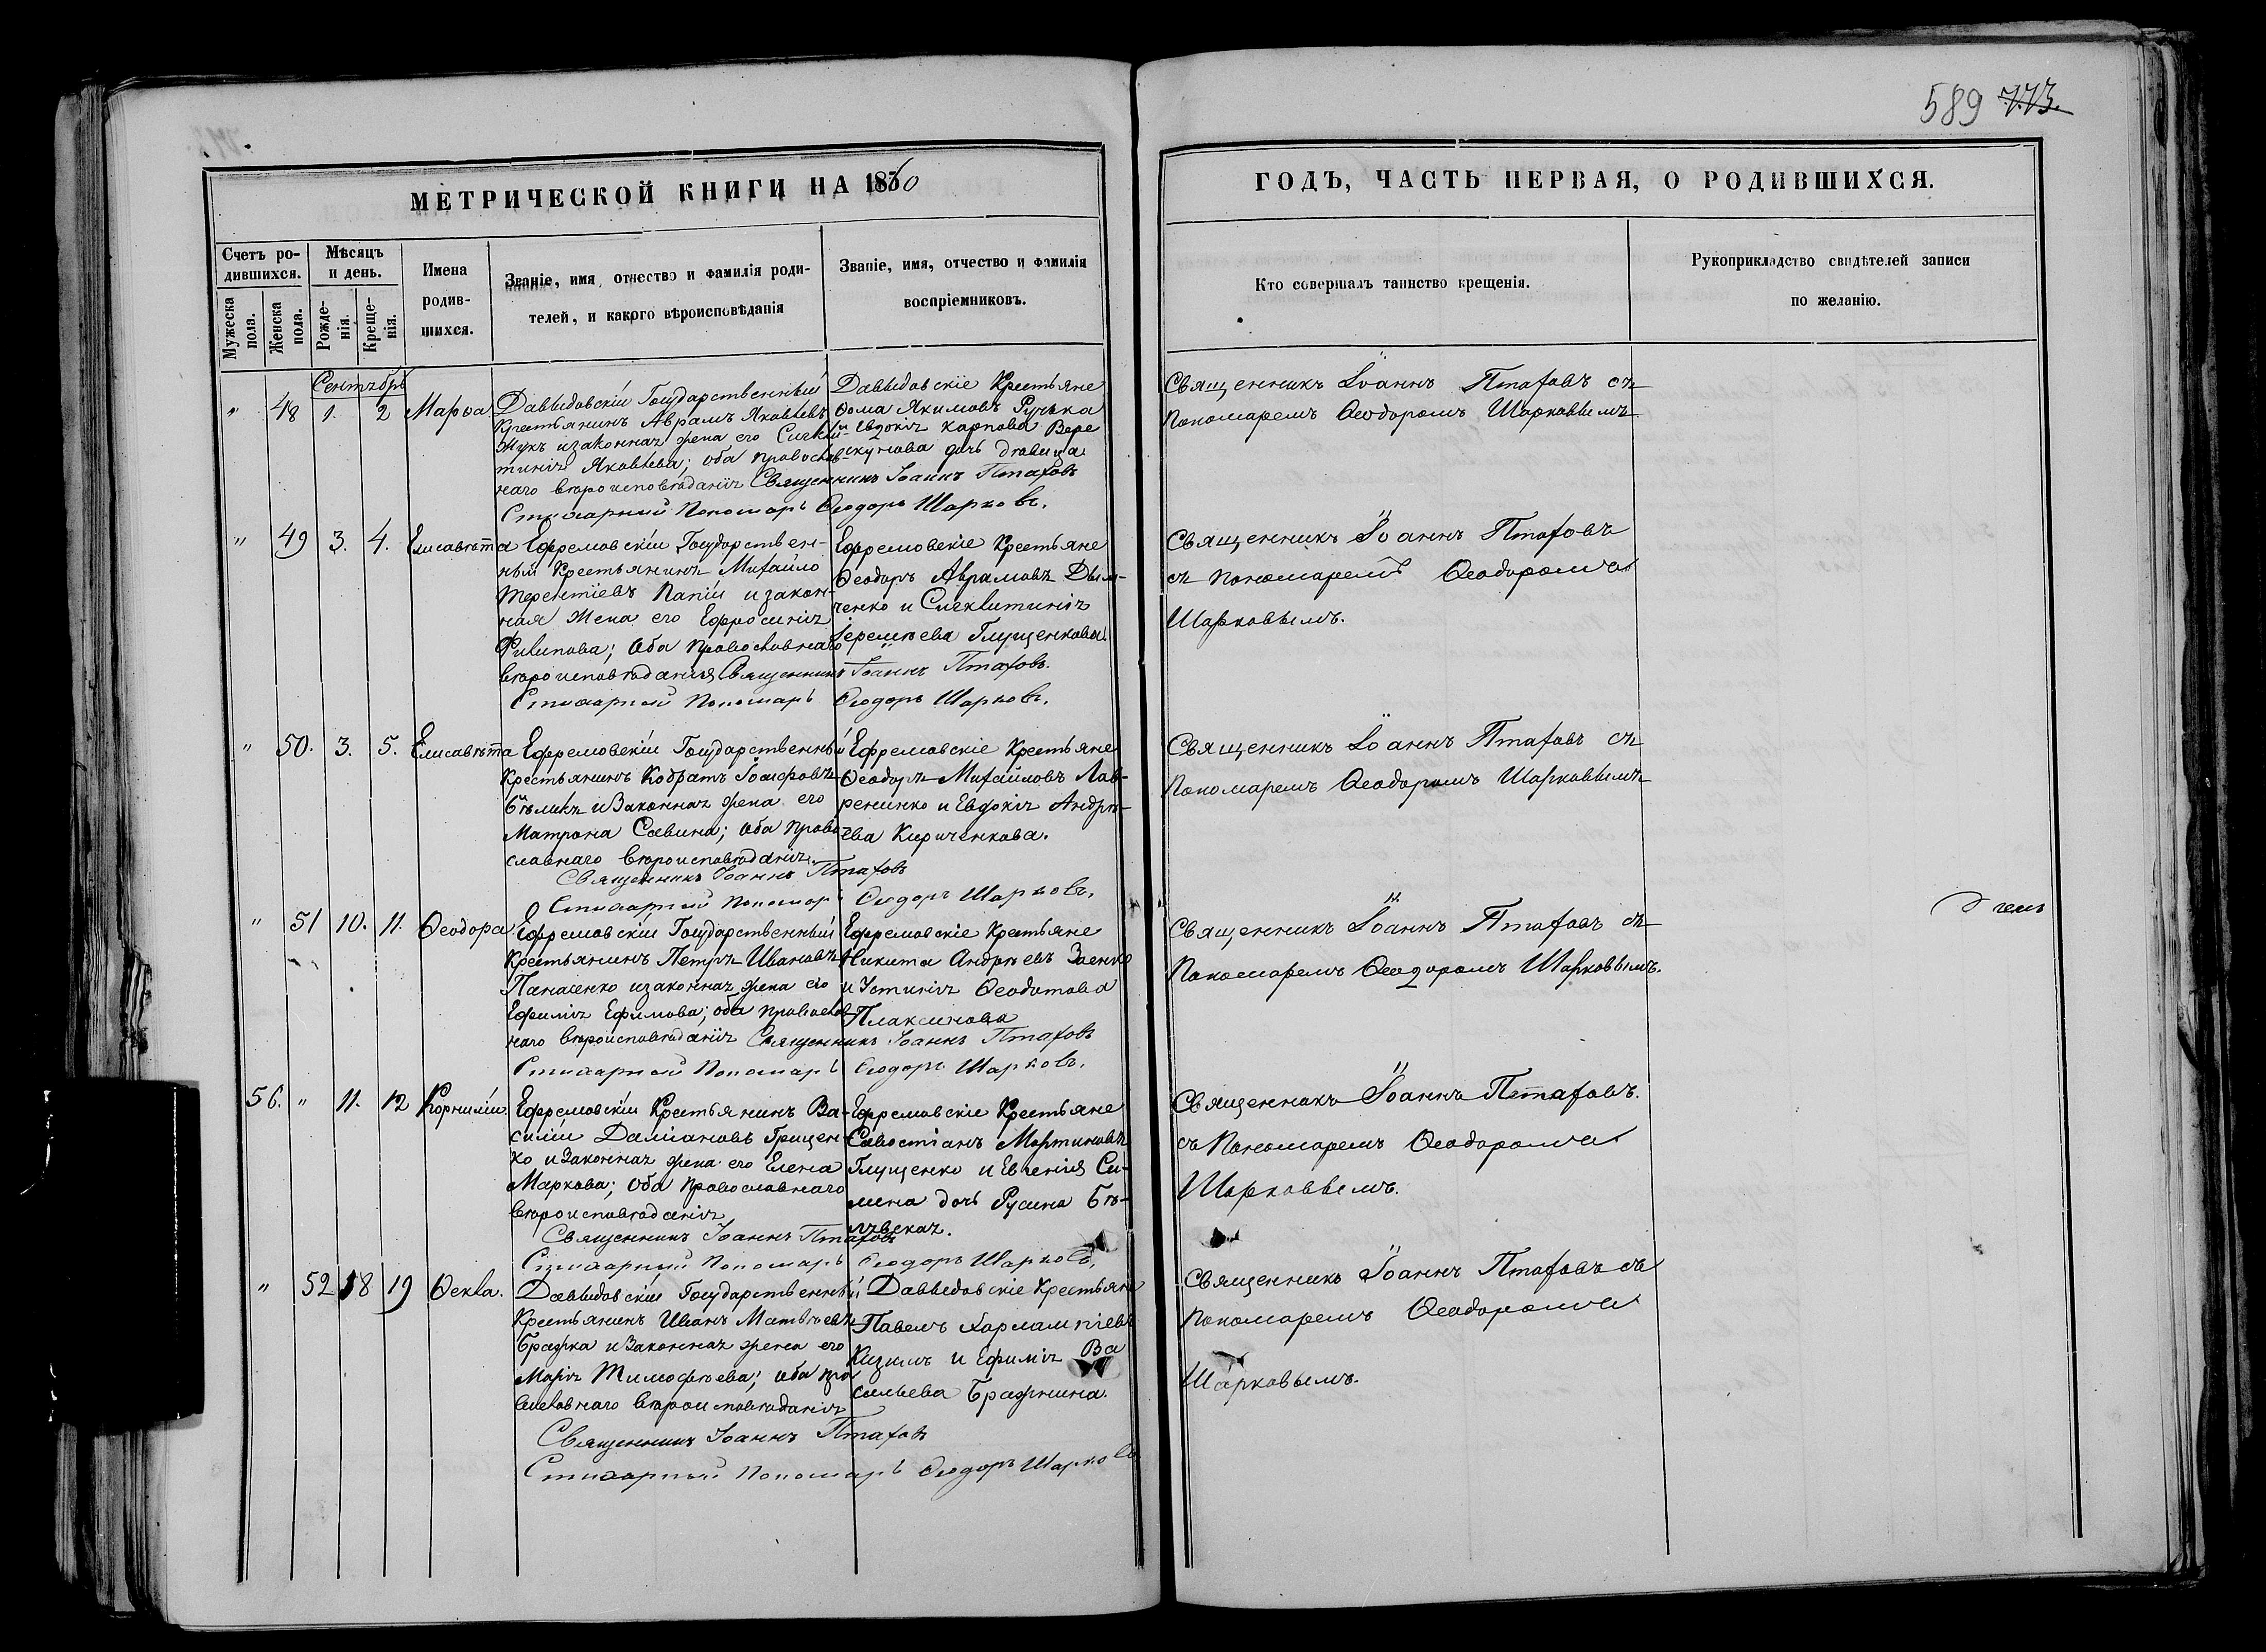 589 773.
МЕТРИЧЕСКОЙ КНИГИ НА 1860
ГОДЪ, ЧАСТЬ ПЕРВАЯ, О РОДИВШИХСЯ.
Счетъ ро-
дившихся.
Мужеска
пола.
Женска
пола.
Мѣсяцъ
и день.
Рожде-
нія.
Креще-
нія.
Имена
родив-
шихся.
Званіе, имя, отчество и фамилія роди-
телей, и какого вѣроисповѣданія
Званіе, имя, отчество и фамилія
воспріемниковъ.
Кто совершалъ таинство крещенія.
Рукоприкладство свидѣтелей записи
по желанію.
Сентябрь
" 48 1. 2 Марѳа
Давыдовскій Государственный
Крестьянинъ Аврамъ Яковлевъ
Жукъ и законная жена его Сигкли-
тикія Яковлева; оба православ-
наго вѣроисповѣданія
Давыдовскіе Крестьяне
Ѳома Якимовъ Ручка
и Евдокія Карпова Вере
скунова дочь дѣвица
Священникъ Іоаннъ Птаховъ
Стихарный Пономарь Ѳеодоръ Шарковъ.
Священникъ Іоаннъ Птаховъ съ
Пономаремъ Ѳеодоромъ Шарковымъ
" 49 3. 4. Елисавѣта
Ефремовскій Государствен-
ный Крестьянинъ Михайло
Терентіевъ Папій и закон-
ная жена его Ефросинія
Филипова; Оба Православнаго
вѣроисповѣданія
Ефремовскіе Крестьяне
Ѳеодоръ Аврамовъ Дым-
ченко и Сигклитикія
Іеремѣева Глущенкова
Священникъ Іоаннъ Птаховъ.
Стихарный Пономарь Ѳеодоръ Шарковъ.
Священникъ Іоаннъ Птаховъ
съ Пономаремъ Ѳеодоромъ
Шарковымъ.
" 50. 3. 5. Елисавѣта
Ефремовскій Государственный
Крестьянинъ Кодратъ Іосифовъ
Бѣликъ и Законная жена его
Матрона Савина; Оба право
славнаго вѣроисповѣданія.
Ефремовскіе Крестьяне
Ѳеодоръ Михайловъ Лав-
рененко и Евдокія Андрѣ-
ева Кириченкова.
Священникъ Іоаннъ Птаховъ
Стихарный Пономарь Ѳеодоръ Шарковъ.
Священникъ Іоаннъ Птаховъ съ
Пономаремъ Ѳеодоромъ Шарковымъ
" 51 10. 11. Ѳеодора
Ефремовскій Государственный
Крестьянинъ Петръ Ивановъ
Панасенко и законная жена его
Ефимія Ефимова; оба православ
наго вѣроисповѣданія
Ефремовскіе Крестьяне
Никита Андрѣевъ Заенко
и Устинія Ѳеодотова
Плаксинова
Священникъ Іоаннъ Птаховъ
Стихарный Пономарь Ѳеодоръ Шарковъ.
Священникъ Іоаннъ Птаховъ съ
Пономаремъ Ѳеодоромъ Шарковымъ.
56. " 11. 12 Корнилій
Ефремовскій Крестьянинъ Ва-
силій Даміановъ Грицен-
ко и Законная жена его Елена
Маркова; Оба Православнаго
вѣроисповѣданія
Ефремовскіе Крестьяне
Савостіанъ Мартиновъ
Глущенко и Евгенія Си-
мина дочь Русина Бѣ-
лѣвская.
Священникъ Іоаннъ Птаховъ
Стихарный Пономарь Ѳеодоръ Шарковъ.
Священникъ Іоаннъ Птаховъ.
съ Пономаремъ Ѳеодоромъ
Шарковымъ.
" 52 18 19 Ѳекла.
Давыдовскій Государственный
Крестьянинъ Иванъ Матвѣевъ
Бражка и Законная жена его
Марія Тимофѣева; оба пра
вославнаго вѣроисповѣданія
Давыдовскіе Крестьяне
Павелъ Харлампіевъ
Кизимъ и Ефимія Ва
сильева Бражнина.
Священникъ Іоаннъ Птаховъ
Стихарный Пономарь Ѳеодоръ Шарковъ
Священникъ Іоаннъ Птаховъ съ
Пономаремъ Ѳеодоромъ
Шарковымъ.